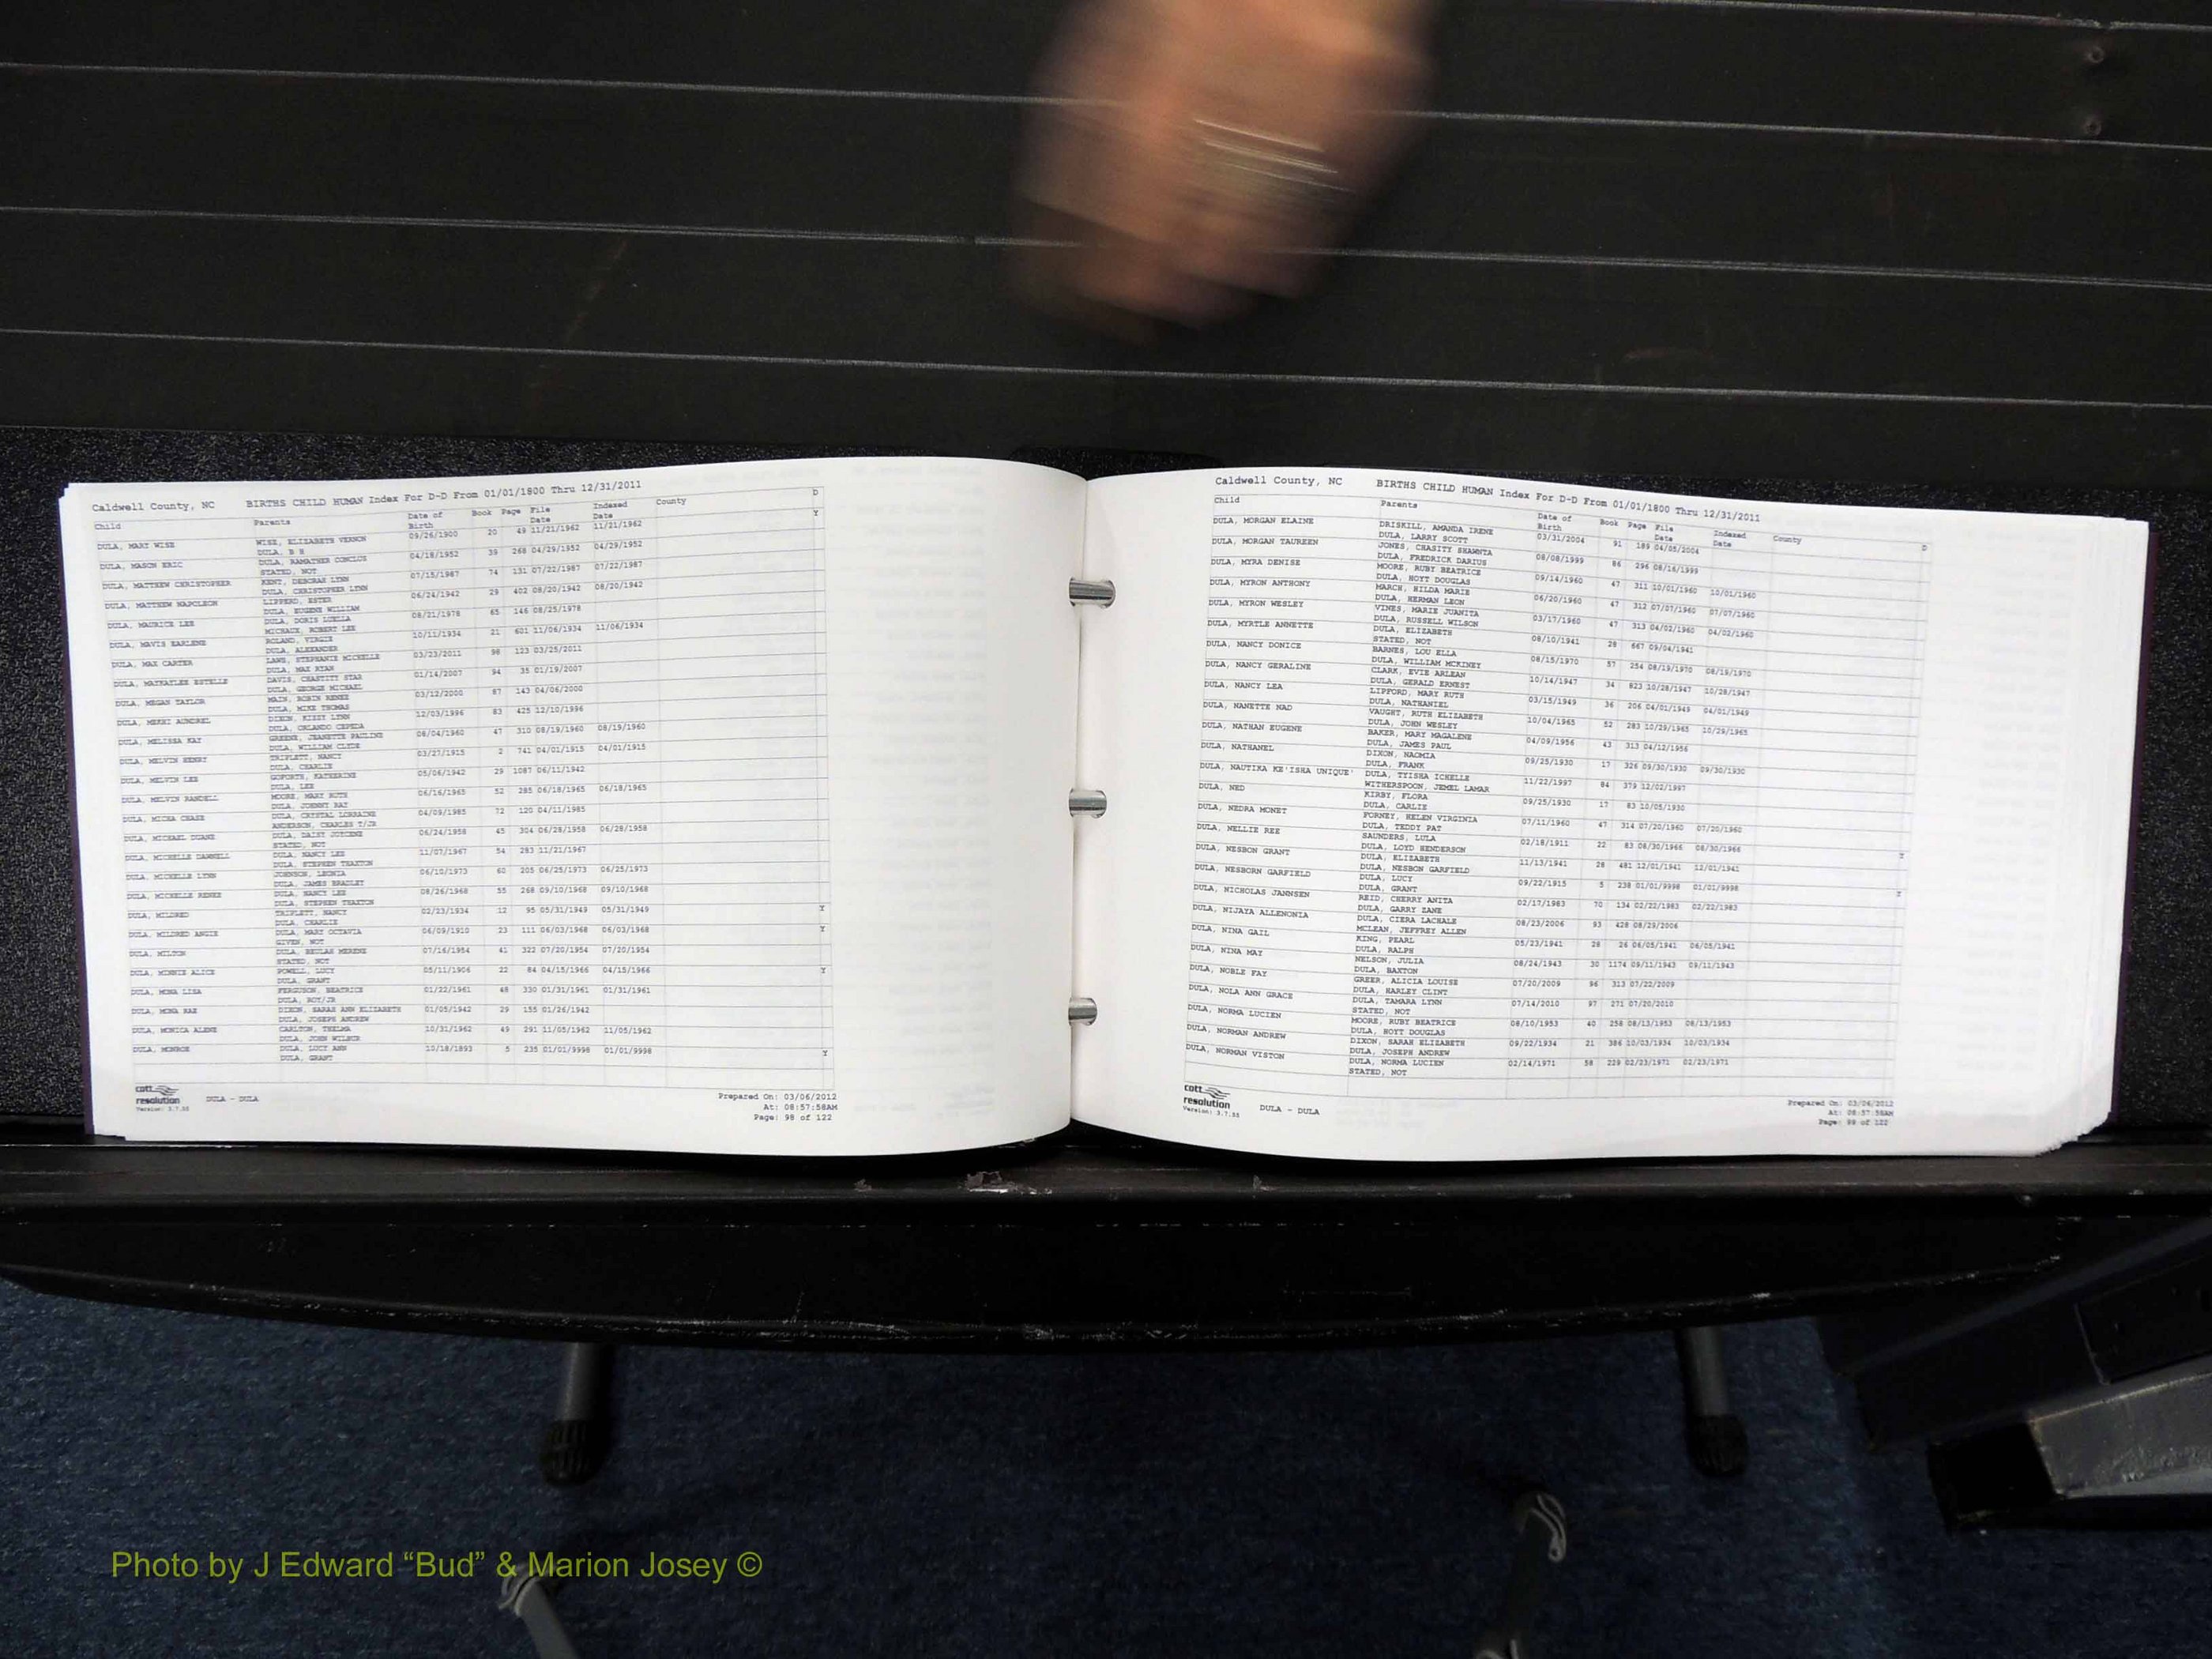 Caldwell County, NC BIRTHS CHILD HUMAN Index For D-D From 01/01/1800 Thru 12/31/2011
Child Parents Date of Birth Book Page File Date Indexed Date County D
DULA, MARY WISE WISE, ELIZABETH VERNON 09/26/1900 20 49 11/21/1962 11/21/1962 Y
DULA, B H
DULA, MASON ERIC DULA, RAMATHER CONCLUS 04/18/1952 39 268 04/29/1952 04/29/1952
STATED, NOT
DULA, MATTHEW CHRISTOPHER KENT, DEBORAH LYNN 07/15/1987 74 131 07/22/1987 07/22/1987
DULA, CHRISTOPHER LYNN
DULA, MATTHEW NAPOLEON LIPPERD, ESTER 06/24/1942 29 402 08/20/1942 08/20/1942
DULA, EUGENE WILLIAM
DULA, MAURICE LEE DULA, DORIS LUELLA 08/21/1978 65 146 08/25/1978
MICHAUX, ROBERT LEE
DULA, MAVIS EARLENE ROLAND, VIRGIE 10/11/1934 21 601 11/06/1934 11/06/1934
DULA, ALEXANDER
DULA, MAX CARTER LAWS, STEPHANIE MICHELLE 03/23/2011 98 123 03/25/2011
DULA, MAX RYAN
DULA, MAYKAYLEE ESTELLE DAVIS, CHASTITY STAR 01/14/2007 94 35 01/19/2007
DULA, GEORGE MICHAEL
DULA, MEGAN TAYLOR MAIN, ROBIN RENEE 03/12/2000 87 143 04/06/2000
DULA, MIKE THOMAS
DULA, MEKKI AUNDREL DIXON, KIZZY LYNN 12/03/1996 83 425 12/10/1996
DULA, ORLANDO CEPEDA
DULA, MELISSA KAY GREENE, JEANETTE PAULINE 08/04/1960 47 310 08/19/1960 08/19/1960
DULA, WILLIAM CLYDE
DULA, MELVIN HENRY TRIPLETT, NANCY 03/27/1915 2 741 04/01/1915 04/01/1915
DULA, CHARLIE
DULA, MELVIN LEE GOFORTH, KATHERINE 05/06/1942 29 1087 06/11/1942
DULA, LEE
DULA, MELVIN RANDELL MOORE, MARY RUTH 06/16/1965 52 285 06/18/1965 06/18/1965
DULA, JOHNNY RAY
DULA, MICHA CHASE DULA, CRYSTAL LORRAINE 04/09/1985 72 120 04/11/1985
ANDERSON, CHARLES T/JR
DULA, MICHAEL DUANE DULA, DAISY JOYCENE 06/24/1958 45 304 06/28/1958 06/28/1958
STATED, NOT
DULA, MICHELLE DANNELL DULA, NANCY LEE 11/07/1967 54 283 11/21/1967
DULA, STEPHEN THAXTON
DULA, MICHELLE LYNN JOHNSON, LEONIA 06/10/1973 60 205 06/25/1973 06/25/1973
DULA, JAMES BRADLEY
DULA, MICHELLE RENEE DULA, NANCY LEE 08/26/1968 55 268 09/10/1968 09/10/1968
DULA, STEPHEN THAXTON
DULA, MILDRED TRIPLETT, NANCY 02/23/1934 12 95 05/31/1949 05/31/1949 Y
DULA, CHARLIE
DULA, MILDRED ANGIE DULA, MARY OCTAVIA 06/09/1910 23 111 06/03/1968 06/03/1968 Y
GIVEN, NOT
DULA, MILTON DULA, BEULAH MERENE 07/16/1954 41 322 07/20/1954 07/20/1954
STATED, NOT
DULA, MINNIE ALICE POWELL, LUCY 05/11/1906 22 84 04/15/1966 04/15/1966 Y
DULA, GRANT
DULA, MONA LISA FERGUSON, BEATRICE 01/22/1961 48 330 01/31/1961 01/31/1961
DULA, ROY/JR
DULA, MONA RAE DIXON, SARAH ANN ELIZABETH 01/05/1942 29 155 01/26/1942
DULA, JOSEPH ANDREW
DULA, MONICA ALENE CARLTON, THELMA 10/31/1962 49 291 11/05/1962 11/05/1962
DULA, JOHN WILSON
DULA, MONROE DULA, LUCY ANN 10/18/1893 5 235 01/01/9998 01/01/9998 Y
DULA, GRANT
cott
resolution DULA - DULA Prepared On: 03/06/2012
Version: 3.7.55 At: 08:57:58AM
Page: 98 of 122
Caldwell County, NC BIRTHS CHILD HUMAN Index For D-D From 01/01/1800 Thru 12/31/2011
Child Parents Date of Birth Book Page File Date Indexed Date County D
DULA, MORGAN ELAINE DRISKILL, AMANDA IRENE 03/31/2004 91 189 04/05/2004
DULA, LARRY SCOTT
DULA, MORGAN TAUREEN JONES, CHASITY SHAWNTA 08/08/1999 86 296 08/16/1999
DULA, FREDRICK DARIUS
DULA, MYRA DENISE MOORE, RUBY BEATRICE 09/14/1960 47 311 10/01/1960 10/01/1960
DULA, HOYT DOUGLAS
DULA, MYRON ANTHONY MARCH, HILDA MARIE 06/20/1960 47 312 07/07/1960 07/07/1960
DULA, HERMAN LEON
DULA, MYRON WESLEY VINES, MARIE JUANITA 03/17/1960 47 313 04/02/1960 04/02/1960
DULA, RUSSELL WILSON
DULA, MYRTLE ANNETTE DULA, ELIZABETH 08/10/1941 28 667 09/04/1941
STATED, NOT
DULA, NANCY DONICE BARNES, LOU ELLA 08/15/1970 57 254 08/19/1970 08/19/1970
DULA, WILLIAM MCKINEY
DULA, NANCY GERALINE CLARK, EVIE ARLEAN 10/14/1947 34 823 10/28/1947 10/28/1947
DULA, GERALD ERNEST
DULA, NANCY LEA LIPFORD, MARY RUTH 03/15/1949 36 206 04/01/1949 04/01/1949
DULA, NATHANIEL
DULA, NANETTE MAD VAUGHT, RUTH ELIZABETH 10/04/1965 52 283 10/29/1965 10/29/1965
DULA, JOHN WESLEY
DULA, NATHAN EUGENE BAKER, MARY MAGALENE 04/09/1956 43 313 04/12/1956
DULA, JAMES PAUL
DULA, NATHANEL DIXON, NAOMIA 09/25/1930 17 326 09/30/1930 09/30/1930
DULA, FRANK
DULA, NAUTIKA KE'ISHA UNIQUE' DULA, TYISHA ICHELLE 11/22/1997 84 379 12/02/1997
WITHERSPOON, JEMEL LAMAR
DULA, NED KIRBY, FLORA 09/25/1930 17 83 10/05/1930
DULA, CARLIE
DULA, NEDRA MONET FORNEY, HELEN VIRGINIA 07/11/1960 47 314 07/20/1960 07/20/1960
DULA, TEDDY PAT
DULA, NELLIE REE SAUNDERS, LULA 02/18/1911 22 83 08/30/1966 08/30/1966 Y
DULA, LOYD HENDERSON
DULA, NESBON GRANT DULA, ELIZABETH 11/13/1941 28 481 12/01/1941 12/01/1941
DULA, NESBON GARFIELD
DULA, NESBORN GARFIELD DULA, LUCY 09/22/1915 5 238 01/01/9998 01/01/9998 Y
DULA, GRANT
DULA, NICHOLAS JANNSEN REID, CHERRY ANITA 02/17/1983 70 134 02/22/1983 02/22/1983
DULA, GARRY ZANE
DULA, NIJAYA ALLENONIA DULA, CIERA LACHALE 08/23/2006 93 428 08/29/2006
MCLEAN, JEFFREY ALLEN
DULA, NINA GAIL KING, PEARL 05/23/1941 28 26 06/05/1941 06/05/1941
DULA, RALPH
DULA, NINA MAY NELSON, JULIA 08/24/1943 30 1174 09/11/1943 09/11/1943
DULA, BAXTON
DULA, NOBLE FAY GREER, ALICIA LOUISE 07/20/2009 96 313 07/22/2009
DULA, HARLEY CLINT
DULA, NOLA ANN GRACE DULA, TAMARA LYNN 07/14/2010 97 271 07/20/2010
STATED, NOT
DULA, NORMA LUCIEN MOORE, RUBY BEATRICE 08/10/1953 40 258 08/13/1953 08/13/1953
DULA, HOYT DOUGLAS
DULA, NORMAN ANDREW DIXON, SARAH ELIZABETH 09/22/1934 21 386 10/03/1934 10/03/1934
DULA, JOSEPH ANDREW
DULA, NORMAN VISTON DULA, NORMA LUCIEN 02/14/1971 58 229 02/23/1971 02/23/1971
STATED, NOT
cott
resolution DULA - DULA Prepared On: 03/06/2012
Version: 3.7.55 At: 08:57:58AM
Page: 99 of 122
Photo by J Edward “Bud” & Marion Josey ©